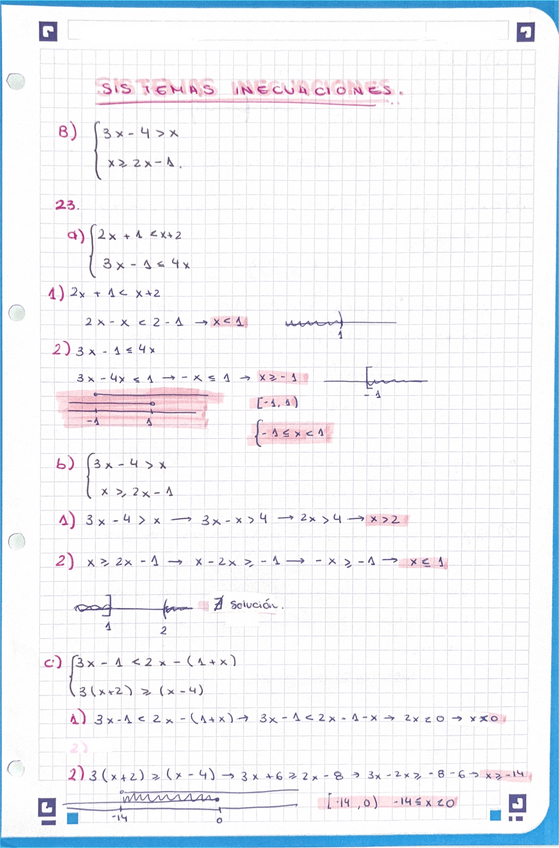 SISTEMAS INECUACIONES.
B) { 3x - 4 > x
x ≥ 2x - 1.
23.
a) { 2x + 1 < x+2
3x - 1 ≤ 4x
1) 2x + 1 < x+2
2x - x < 2 - 1 → x < 1
1
2) 3x - 1 ≤ 4x
3x - 4x ≤ 1 → -x ≤ 1 → x ≥ -1
-1
-1 1
[-1, 1)
{ -1 ≤ x < 1
b) { 3x - 4 > x
x ≥ 2x - 1
1) 3x - 4 > x → 3x - x > 4 → 2x > 4 → x > 2
2) x ≥ 2x - 1 → x - 2x ≥ -1 → -x ≥ -1 → x ≤ 1
1 2
∄ Solución.
c) { 3x - 1 < 2x - (1+x)
3(x+2) ≥ (x-4)
1) 3x-1 < 2x - (1+x) → 3x - 1 < 2x - 1 - x → 2x < 0 → x < 0
2)
2) 3(x+2) ≥ (x-4) → 3x + 6 ≥ 2x - 8 → 3x - 2x ≥ -8 - 6 → x ≥ -14
-14 0
[-14, 0) -14 ≤ x < 0